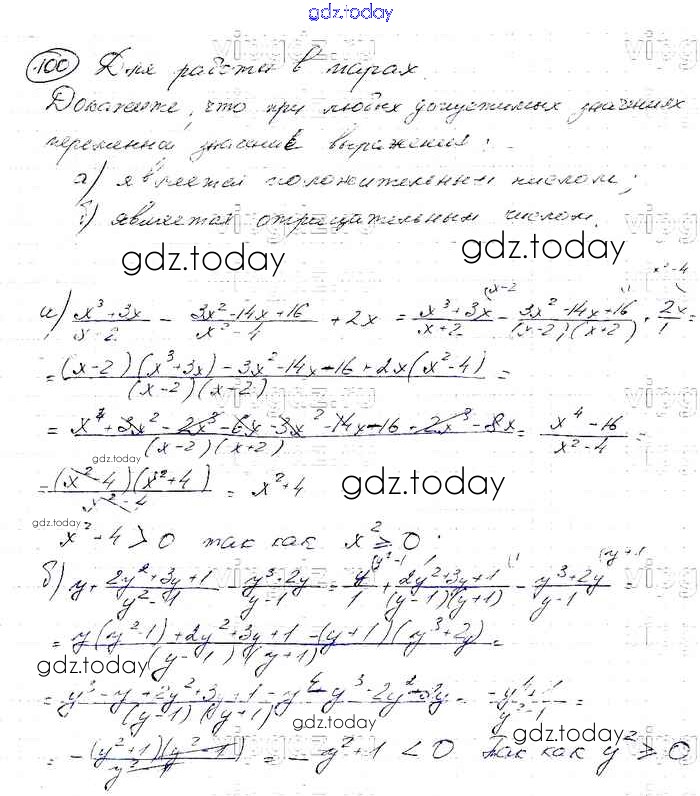 gdz.today
100 Для работы в парах.
Докажите, что при любых допустимых значениях
переменной значение выражения:
а) является положительным числом;
б) является отрицательным числом.
gdz.today gdz.today
а) (x³+3x)/(x-2) - (3x²-14x+16)/(x²-4) + 2x = (x³+3x)/(x+2) - (3x²-14x+16)/((x-2)(x+2)) + 2x/1 =
= ((x-2)(x³+3x)-3x²-14x-16+2x(x²-4))/((x-2)(x-2)) =
= (x⁴+3x²-2x³-6x-3x²-14x-16+2x³-8x)/((x-2)(x+2)) = (x⁴-16)/(x²-4) =
gdz.today
= ((x²-4)(x²+4))/(x²-4) = x²+4 gdz.today
gdz.today
x²+4>0 так как x²≥0.
б) y+(2y²+3y+1)/(y²-1) - (y³+2y)/(y-1) = y/1 + (2y²+3y+1)/((y-1)(y+1)) - (y³+2y)/(y-1) =
= (y(y²-1)+2y²+3y+1-(y+1)(y³+2y))/((y-1)(y+1)) =
gdz.today gdz.today
= (y³-y+2y²+3y+1-y⁴-y³-2y²-2y)/((y-1)(y+1)) = (-y⁴+1)/(y²-1) =
gdz.today gdz.today
= -((y²+1)(y²-1))/(y²-1) = -y²+1 <0 так как y²≥0